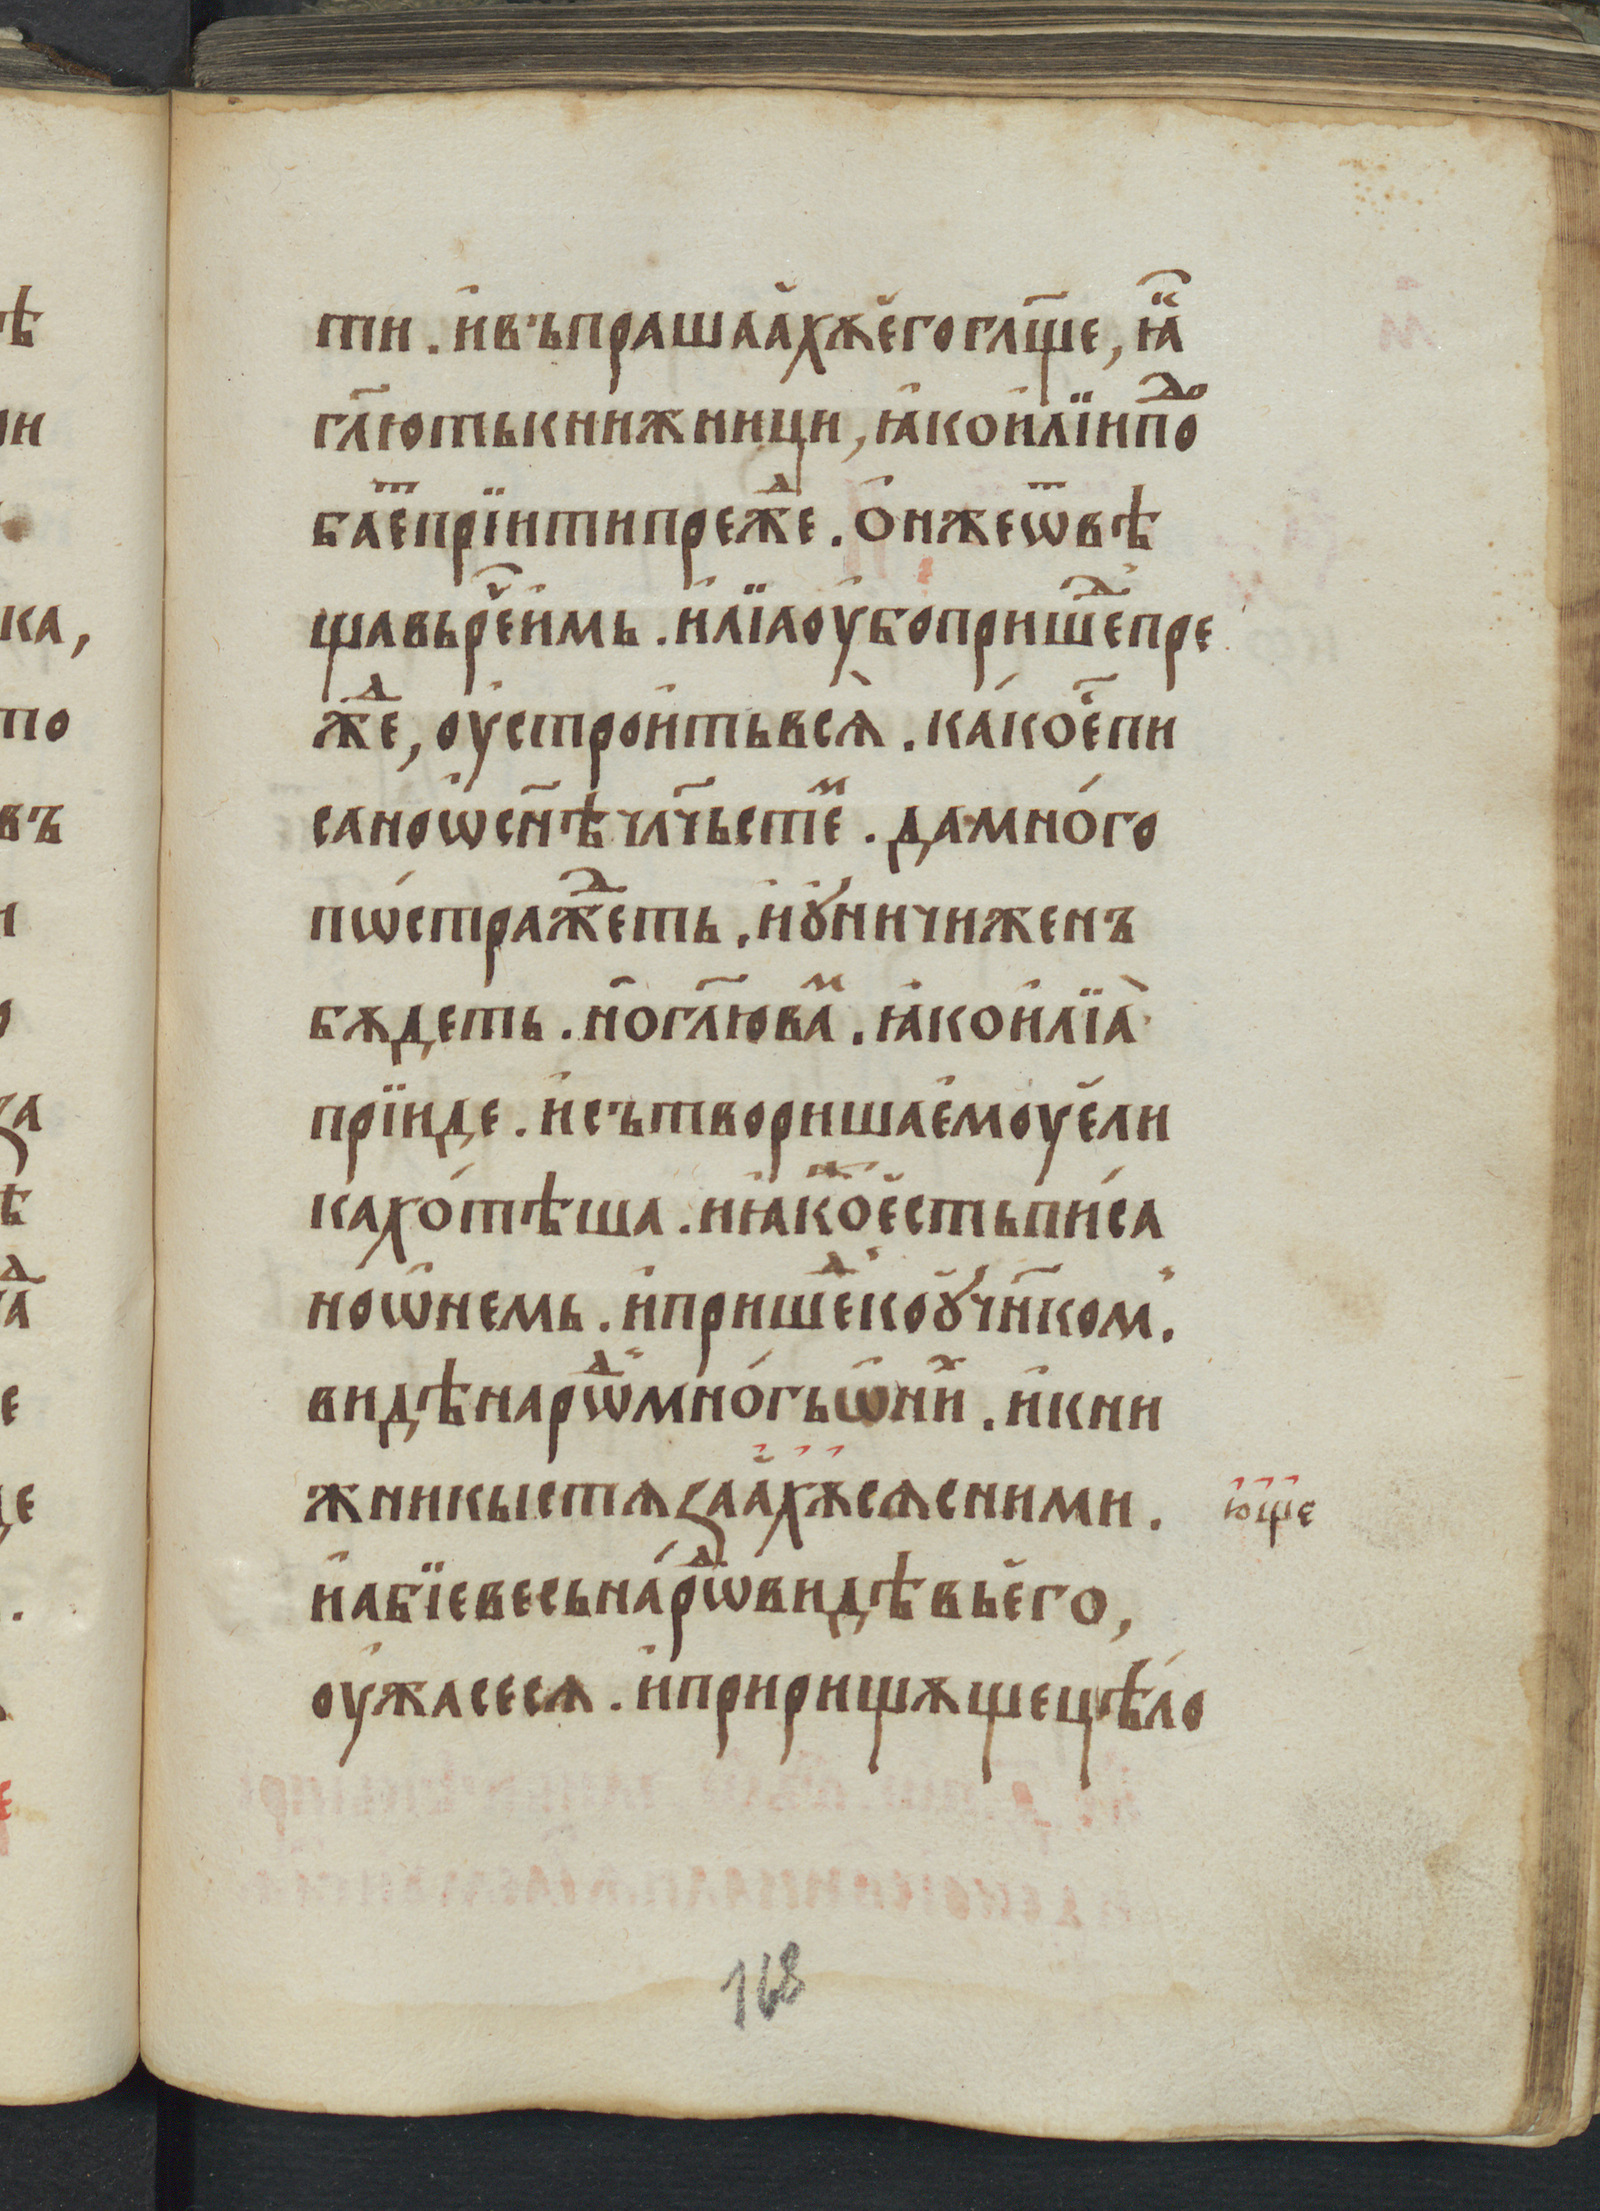 ти . и҆въпрашаа҆хѫе҆гогл҃ще , ꙗ҆ⷦ҇
гл҃ютькнижници , ꙗ҆коиліинпоⷣ
баеⷮ҇прїитипрежеⷣ . ѻ҆нжеѿвѣ
щавьре҆ⷱ҇имь . и҆лїаоу҆бопришеⷣпре
жеⷣ , оу҆строи҆тьвсѧ̀ . ка́коеⷭ҇пи
саноѡ҆сн҃ѣчл҃чьстеⷨ . дамно́го
пѡ́стражеⷣть . и҆ꙋ҆ничиженъ
бѫдеть . но҆гл҃юваⷨ . ꙗ҆кои҆лїа̀
прїиде . и҆сътворишае҆моуе҆ли
кахо́тѣша . иꙗ҆коⷤе҆стьпи́са
ноѡ҆немь . и҆пришеⷣкоꙋ҆чн҃ком .
видѣнарѡⷣмно́гьѡ҆ниⷯ . и҆кни
жникыстѧꙁаа҆хѫсѧсними .
юще
и҆абїевесьна́рѡⷣвидѣвье҆го ,
оу҆жасесѧ . и҆пририщѫщецѣло
168